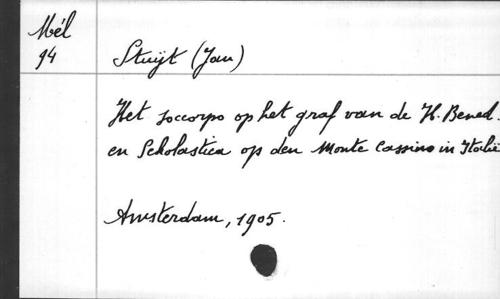 Mél
94
Stuÿt (Jan)
Het soccorpo op het graf van de H. Bened.
en Scholastica op den Monte Cassino in Italië
Amsterdam, 1905.